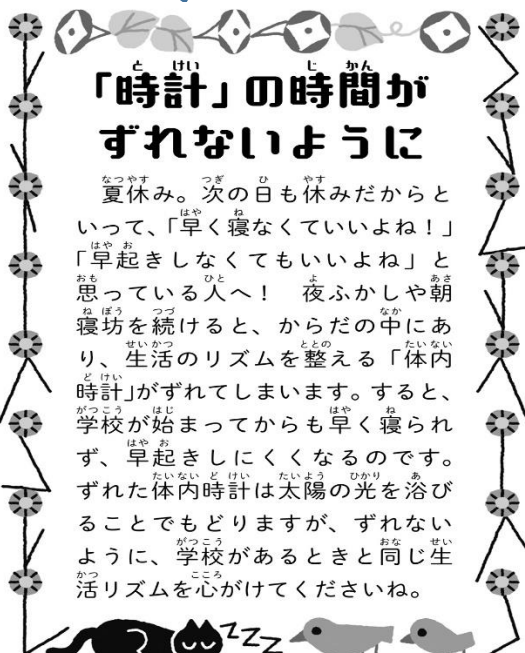 「時計」の時間が
ずれないように
夏休み。次の日も休みだからと
いって、「早く寝なくていいよね！」
「早起きしなくてもいいよね」と
思っている人へ！　夜ふかしや朝
寝坊を続けると、からだの中にあ
り、生活のリズムを整える「体内
時計」がずれてしまいます。すると、
学校が始まってからも早く寝られ
ず、早起きしにくくなるのです。
ずれた体内時計は太陽の光を浴び
ることでもどりますが、ずれない
ように、学校があるときと同じ生
活リズムを心がけてくださいね。
zzz